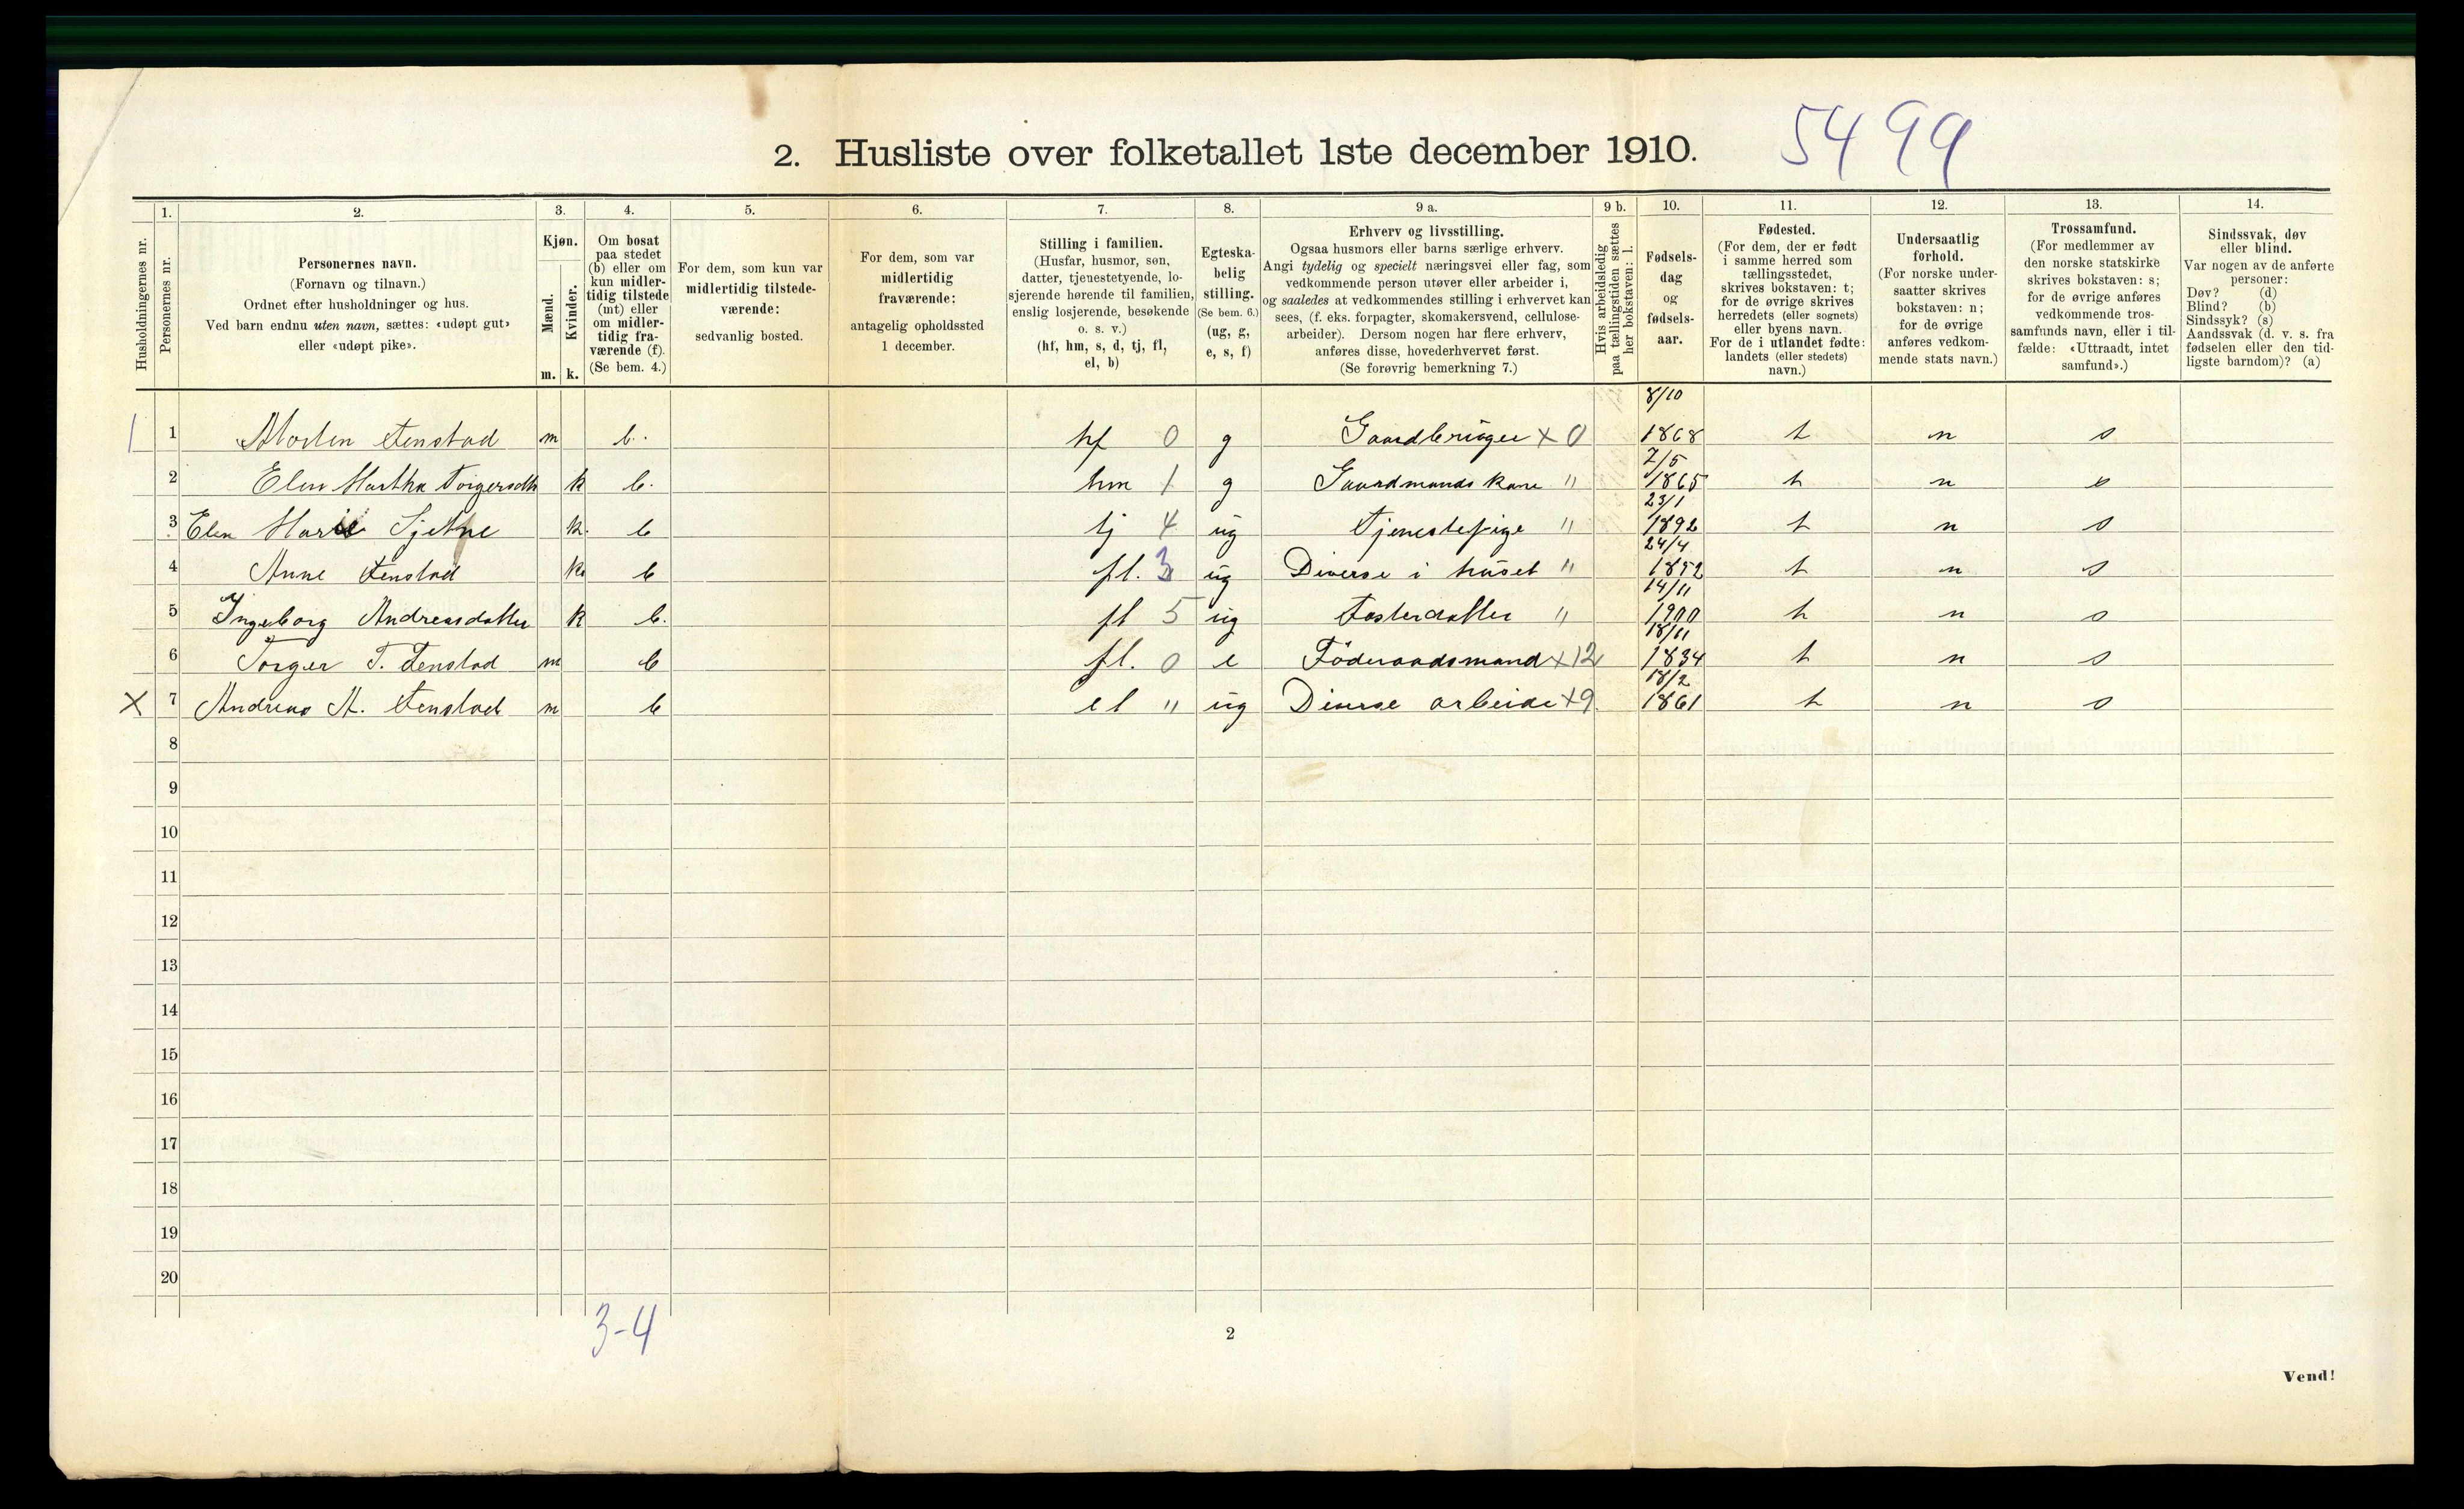 2. Husliste over folketallet 1ste december 1910. 5499
1. 2. 3. 4. 5. 6. 7. 8. 9 a. 9 b. 10. 11. 12. 13. 14.
Husholdningernes nr.
Personernes nr.
Personernes navn.
(Fornavn og tilnavn.)
Ordnet efter husholdninger og hus.
Ved barn endnu uten navn, sættes: «udøpt gut»
eller «udøpt pike».
Kjøn.
Mænd.
Kvinder.
m. k.
Om bosat
paa stedet
(b) eller om
kun midler-
tidig tilstede
(mt) eller
om midler-
tidig fra-
værende (f).
(Se bem. 4.)
For dem, som kun var
midlertidig tilstede-
værende:
sedvanlig bosted.
For dem, som var
midlertidig
fraværende:
antagelig opholdssted
1 december.
Stilling i familien.
(Husfar, husmor, søn,
datter, tjenestetyende, lo-
sjerende hørende til familien,
enslig losjerende, besøkende
o. s. v.)
(hf, hm, s, d, tj, fl,
el, b)
Egteska-
belig
stilling.
(Se bem. 6.)
(ug, g,
e, s, f)
Erhverv og livsstilling.
Ogsaa husmors eller barns særlige erhverv.
Angi tydelig og specielt næringsvei eller fag, som
vedkommende person utøver eller arbeider i,
og saaledes at vedkommendes stilling i erhvervet kan
sees, (f. eks. forpagter, skomakersvend, cellulose-
arbeider). Dersom nogen har flere erhverv,
anføres disse, hovederhvervet først.
(Se forøvrig bemerkning 7.)
Hvis arbeidsledig
paa tællingstiden sættes
her bokstaven: l.
Fødsels-
dag
og
fødsels-
aar.
Fødested.
(For dem, der er født
i samme herred som
tællingsstedet,
skrives bokstaven: t;
for de øvrige skrives
herredets (eller sognets)
eller byens navn.
For de i utlandet fødte:
landets (eller stedets)
navn.)
Undersaatlig
forhold.
(For norske under-
saatter skrives
bokstaven: n;
for de øvrige
anføres vedkom-
mende stats navn.)
Trossamfund.
(For medlemmer av
den norske statskirke
skrives bokstaven: s;
for de øvrige anføres
vedkommende tros-
samfunds navn, eller i til-
fælde: «Uttraadt, intet
samfund».)
Sindssvak, døv
eller blind.
Var nogen av de anførte
personer:
Døv? (d)
Blind? (b)
Sindssyk? (s)
Aandssvak (d. v. s. fra
fødselen eller den tid-
ligste barndom)? (a)
8/10
1 1 Morten Fenstad m b. hf 0 g Gaardbruger x 0 1868 t n s
7/5
2 Elen Martha Torgersdtr k b. hm 1 g Gaardmands kone " 1865 t n s
23/1
3 Elen Marie Sjetne k. b tj 4 ug Tjenestepige " 1892 t n s
24/4
4 Anne Fenstad k. b fl. 3 ug Diverse i huset " 1852 t n s
14/11
5 Ingeborg Andreasdatter k b. fl 5 ug Fosterdatter " 1900 t n s
18/11
6 Torger T. Fenstad m b fl. 0 e Föderaadsmand x 12 1834 t n s
18/2
X 7 Andreas A. Fenstad m b el " ug Diverse arbeide x 9. 1861 t n s
8
9
10
11
12
13
14
15
16
17
18
19
20
3-4
2
Vend!